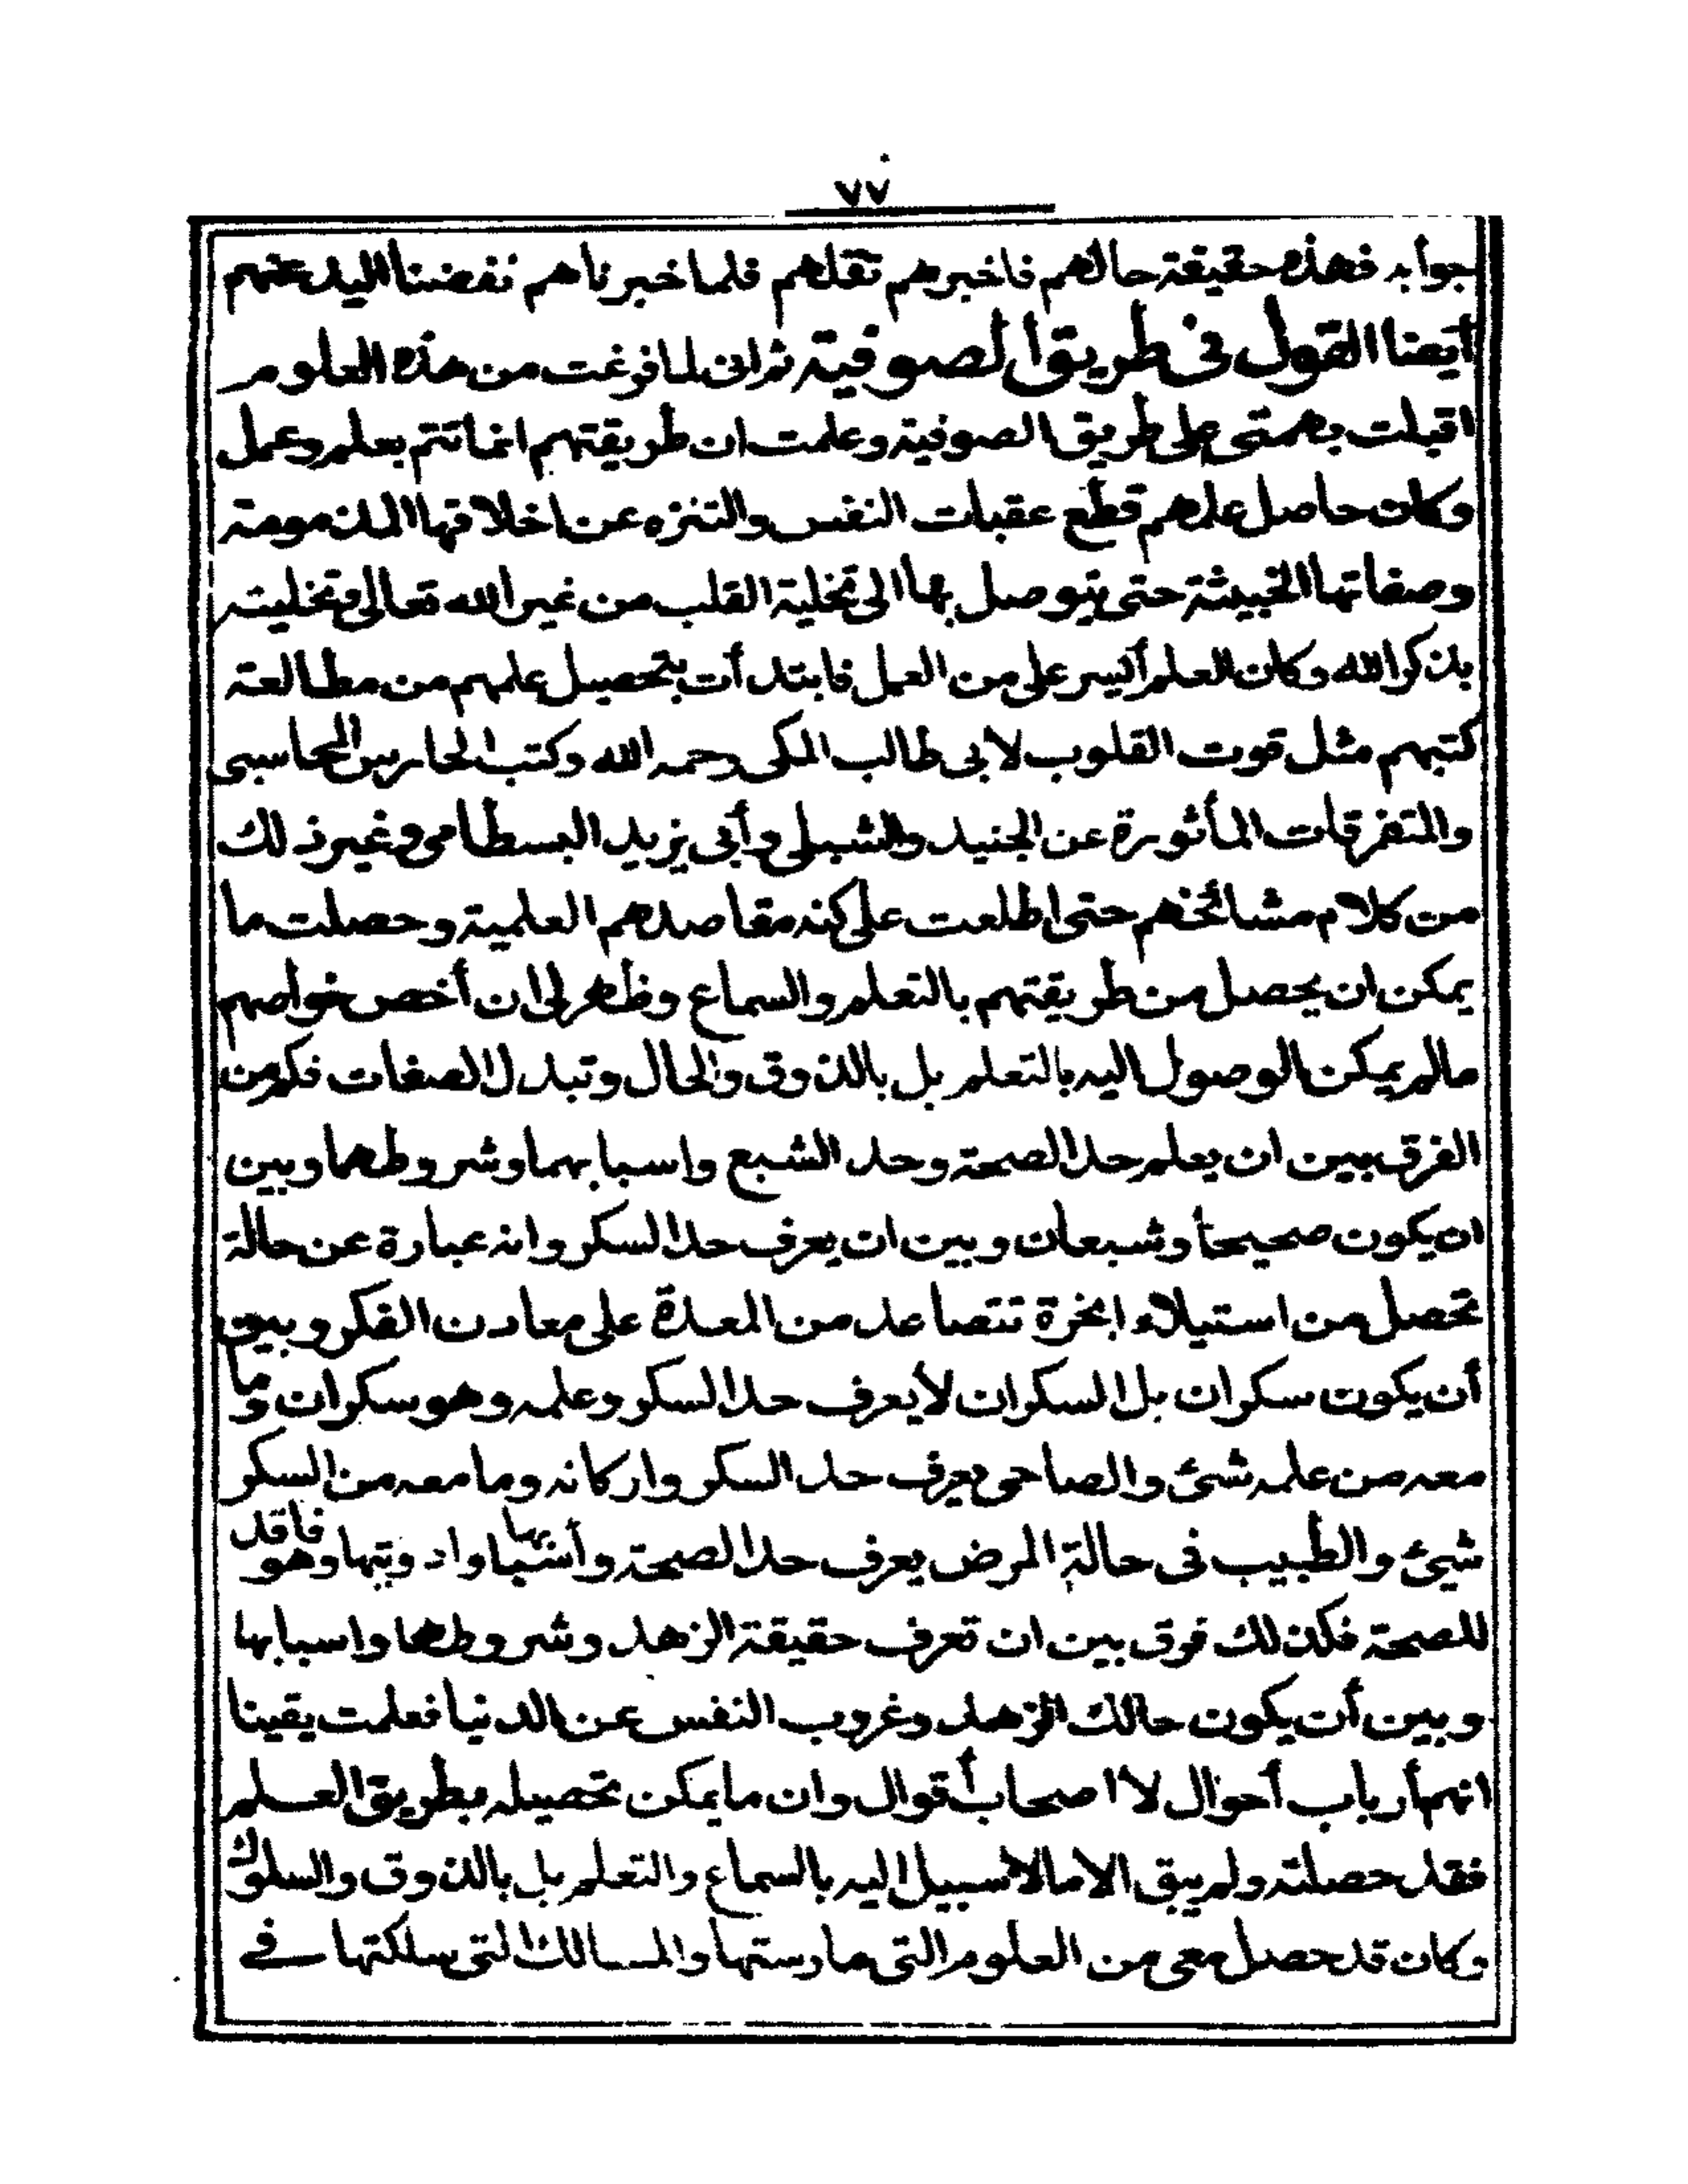 ٧٧
جوابه فهذه حقيقة حالهم فاخبرهم تقلهم فلما خبرناهم نفضنا اليد عنهم
أيضا القول فى طريق الصوفية ثم انى لما فرغت من هذه العلوم
اقبلت بهمتى على طريق الصوفية وعلمت ان طريقتهم انما تتم بعلم وعمل
وكان حاصل علمهم قطع عقبات النفس والتنزه عن اخلاقها المذمومة
وصفاتها الخبيثة حتى يتوصل بها الى تخلية القلب من غير الله تعالى وتحليته
بذكر الله وكان العلم أيسر على من العمل فابتدأت بتحصيل علمهم من مطالعة
كتبهم مثل قوت القلوب لابى طالب المكى رحمه الله وكتب الحارس المحاسبى
والمتفرقات المأثورة عن الجنيد والشبلى وأبى يزيد البسطامى وغير ذلك
من كلام مشائخهم حتى اطلعت على كنه مقاصدهم العلمية وحصلت ما
يمكن ان يحصل من طريقتهم بالتعلم والسماع وظهر لى ان أخص خواصهم
مالم يمكن الوصول اليه بالتعلم بل بالذوق والحال وتبدل الصفات فكم من
الفرق بين ان يعلم حد الصحة وحد الشبع واسبابهما وشروطهما وبين
ان يكون صحيحا وشبعان وبين ان يعرف حد السكر وانه عبارة عن حالة
تحصل من استيلاء ابخرة تتصاعد من المعدة على معادن الفكر وبين
أن يكون سكران بل السكران لا يعرف حد السكر وعلمه وهو سكران وما
معه من علمه شئ والصاحى يعرف حد السكر واركانه وما معه من السكر
شيئ والطبيب فى حالة المرض يعرف حد الصحة وأسبابها وادويتها وهو فاقد
للصحة فكذلك فرق بين ان تعرف حقيقة الزهد وشروطها واسبابها
وبين أن يكون حالك الزهد وغروب النفس عن الدنيا فعلمت يقينا
انهم أرباب أحوال لا اصحاب أقوال وان ما يمكن تحصيله بطريق العلم
فقد حصلته ولم يبق الا مالا سبيل اليه بالسماع والتعلم بل بالذوق والسلوك
وكان قد حصل معى من العلوم التى مارستها والمسالك التى سلكتها فى